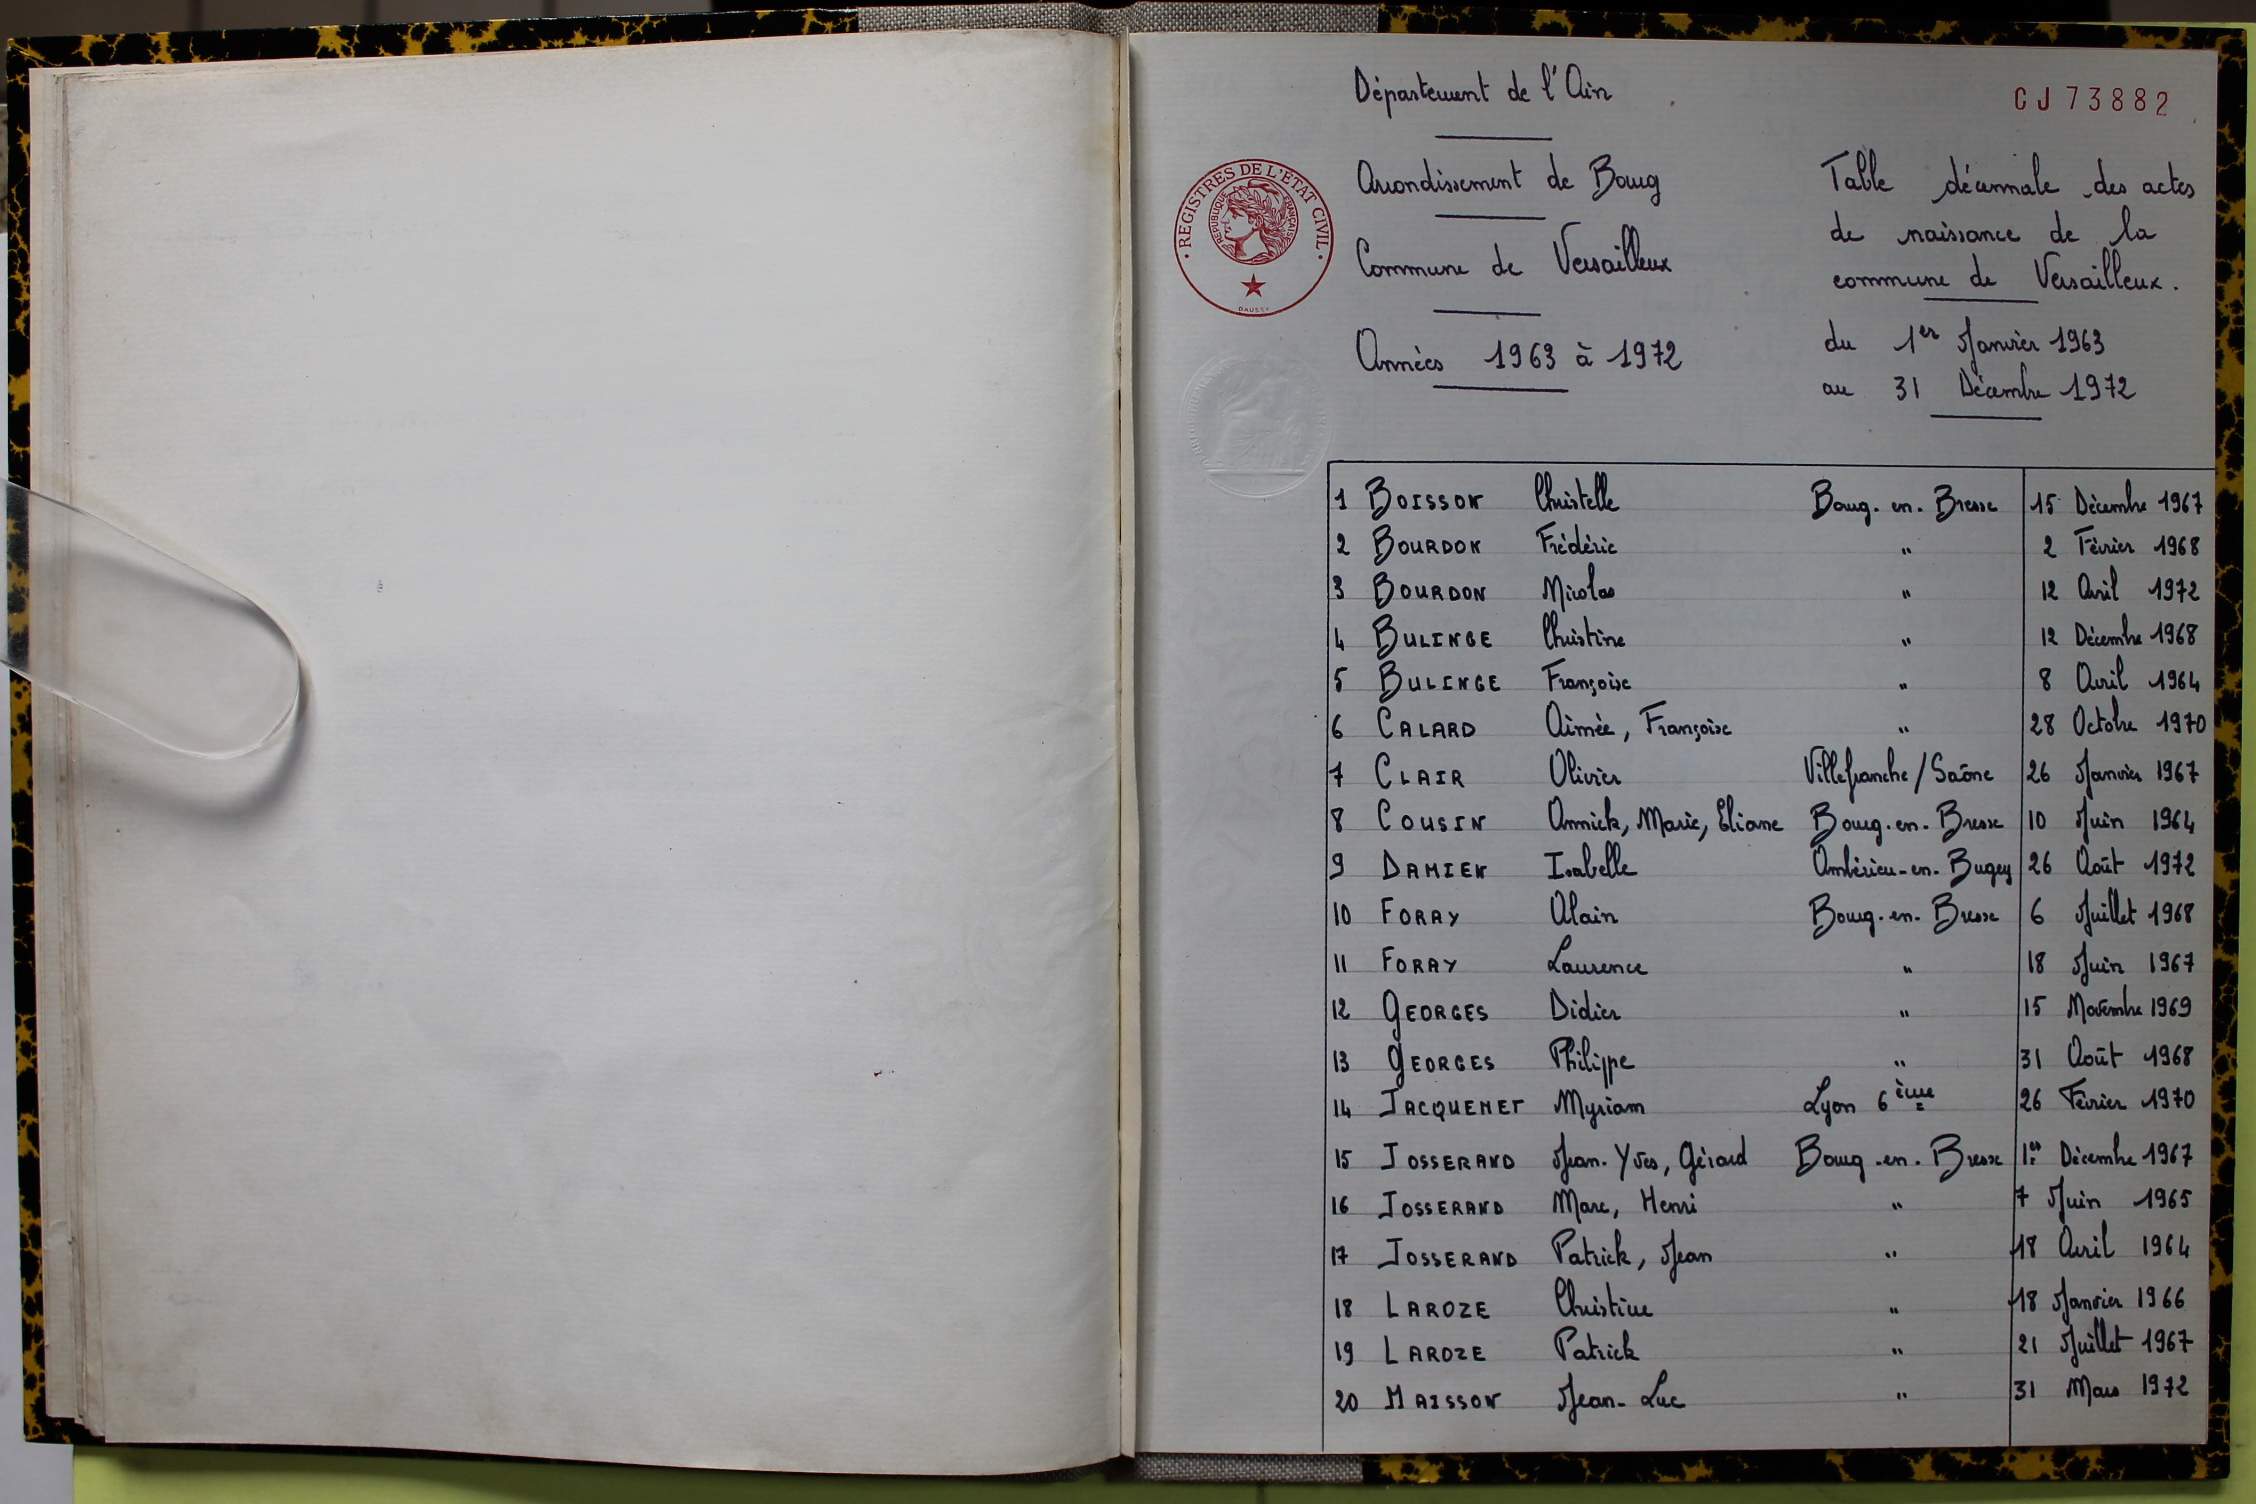 Département de l'Ain
CJ 73882
REGISTRES DE L'ETAT CIVIL
REPUBLIQUE FRANÇAISE
DAUSSY
Arrondissement de Bourg
Commune de Versailleux
Années 1963 à 1972
Table décennale des actes
de naissance de la
commune de Versailleux.
du 1er Janvier 1963
au 31 Décembre 1972
1 BOISSON Christelle Bourg-en-Bresse 15 Décembre 1967
2 BOURDON Frédéric " 2 Février 1968
3 BOURDON Nicolas " 12 Avril 1972
4 BULINGE Christine " 12 Décembre 1968
5 BULINGE Françoise " 8 Avril 1964
6 CALARD Aimée, Françoise " 28 Octobre 1970
7 CLAIR Olivier Villefranche/Saône 26 Janvier 1967
8 COUSIN Annick, Marie, Eliane Bourg-en-Bresse 10 Juin 1964
9 DAMIEN Isabelle Ambérieu-en-Bugey 26 Août 1972
10 FORAY Alain Bourg-en-Bresse 6 Juillet 1968
11 FORAY Laurence " 18 Juin 1967
12 GEORGES Didier " 15 Novembre 1969
13 GEORGES Philippe " 31 Août 1968
14 JACQUEMET Myriam Lyon 6ème 26 Février 1970
15 JOSSERAND Jean-Yves, Gérard Bourg-en-Bresse 1er Décembre 1967
16 JOSSERAND Marc, Henri " 7 Juin 1965
17 JOSSERAND Patrick, Jean " 18 Avril 1964
18 LAROZE Christine " 18 Janvier 1966
19 LAROZE Patrick " 21 Juillet 1967
20 MAISSON Jean-Luc " 31 Mars 1972